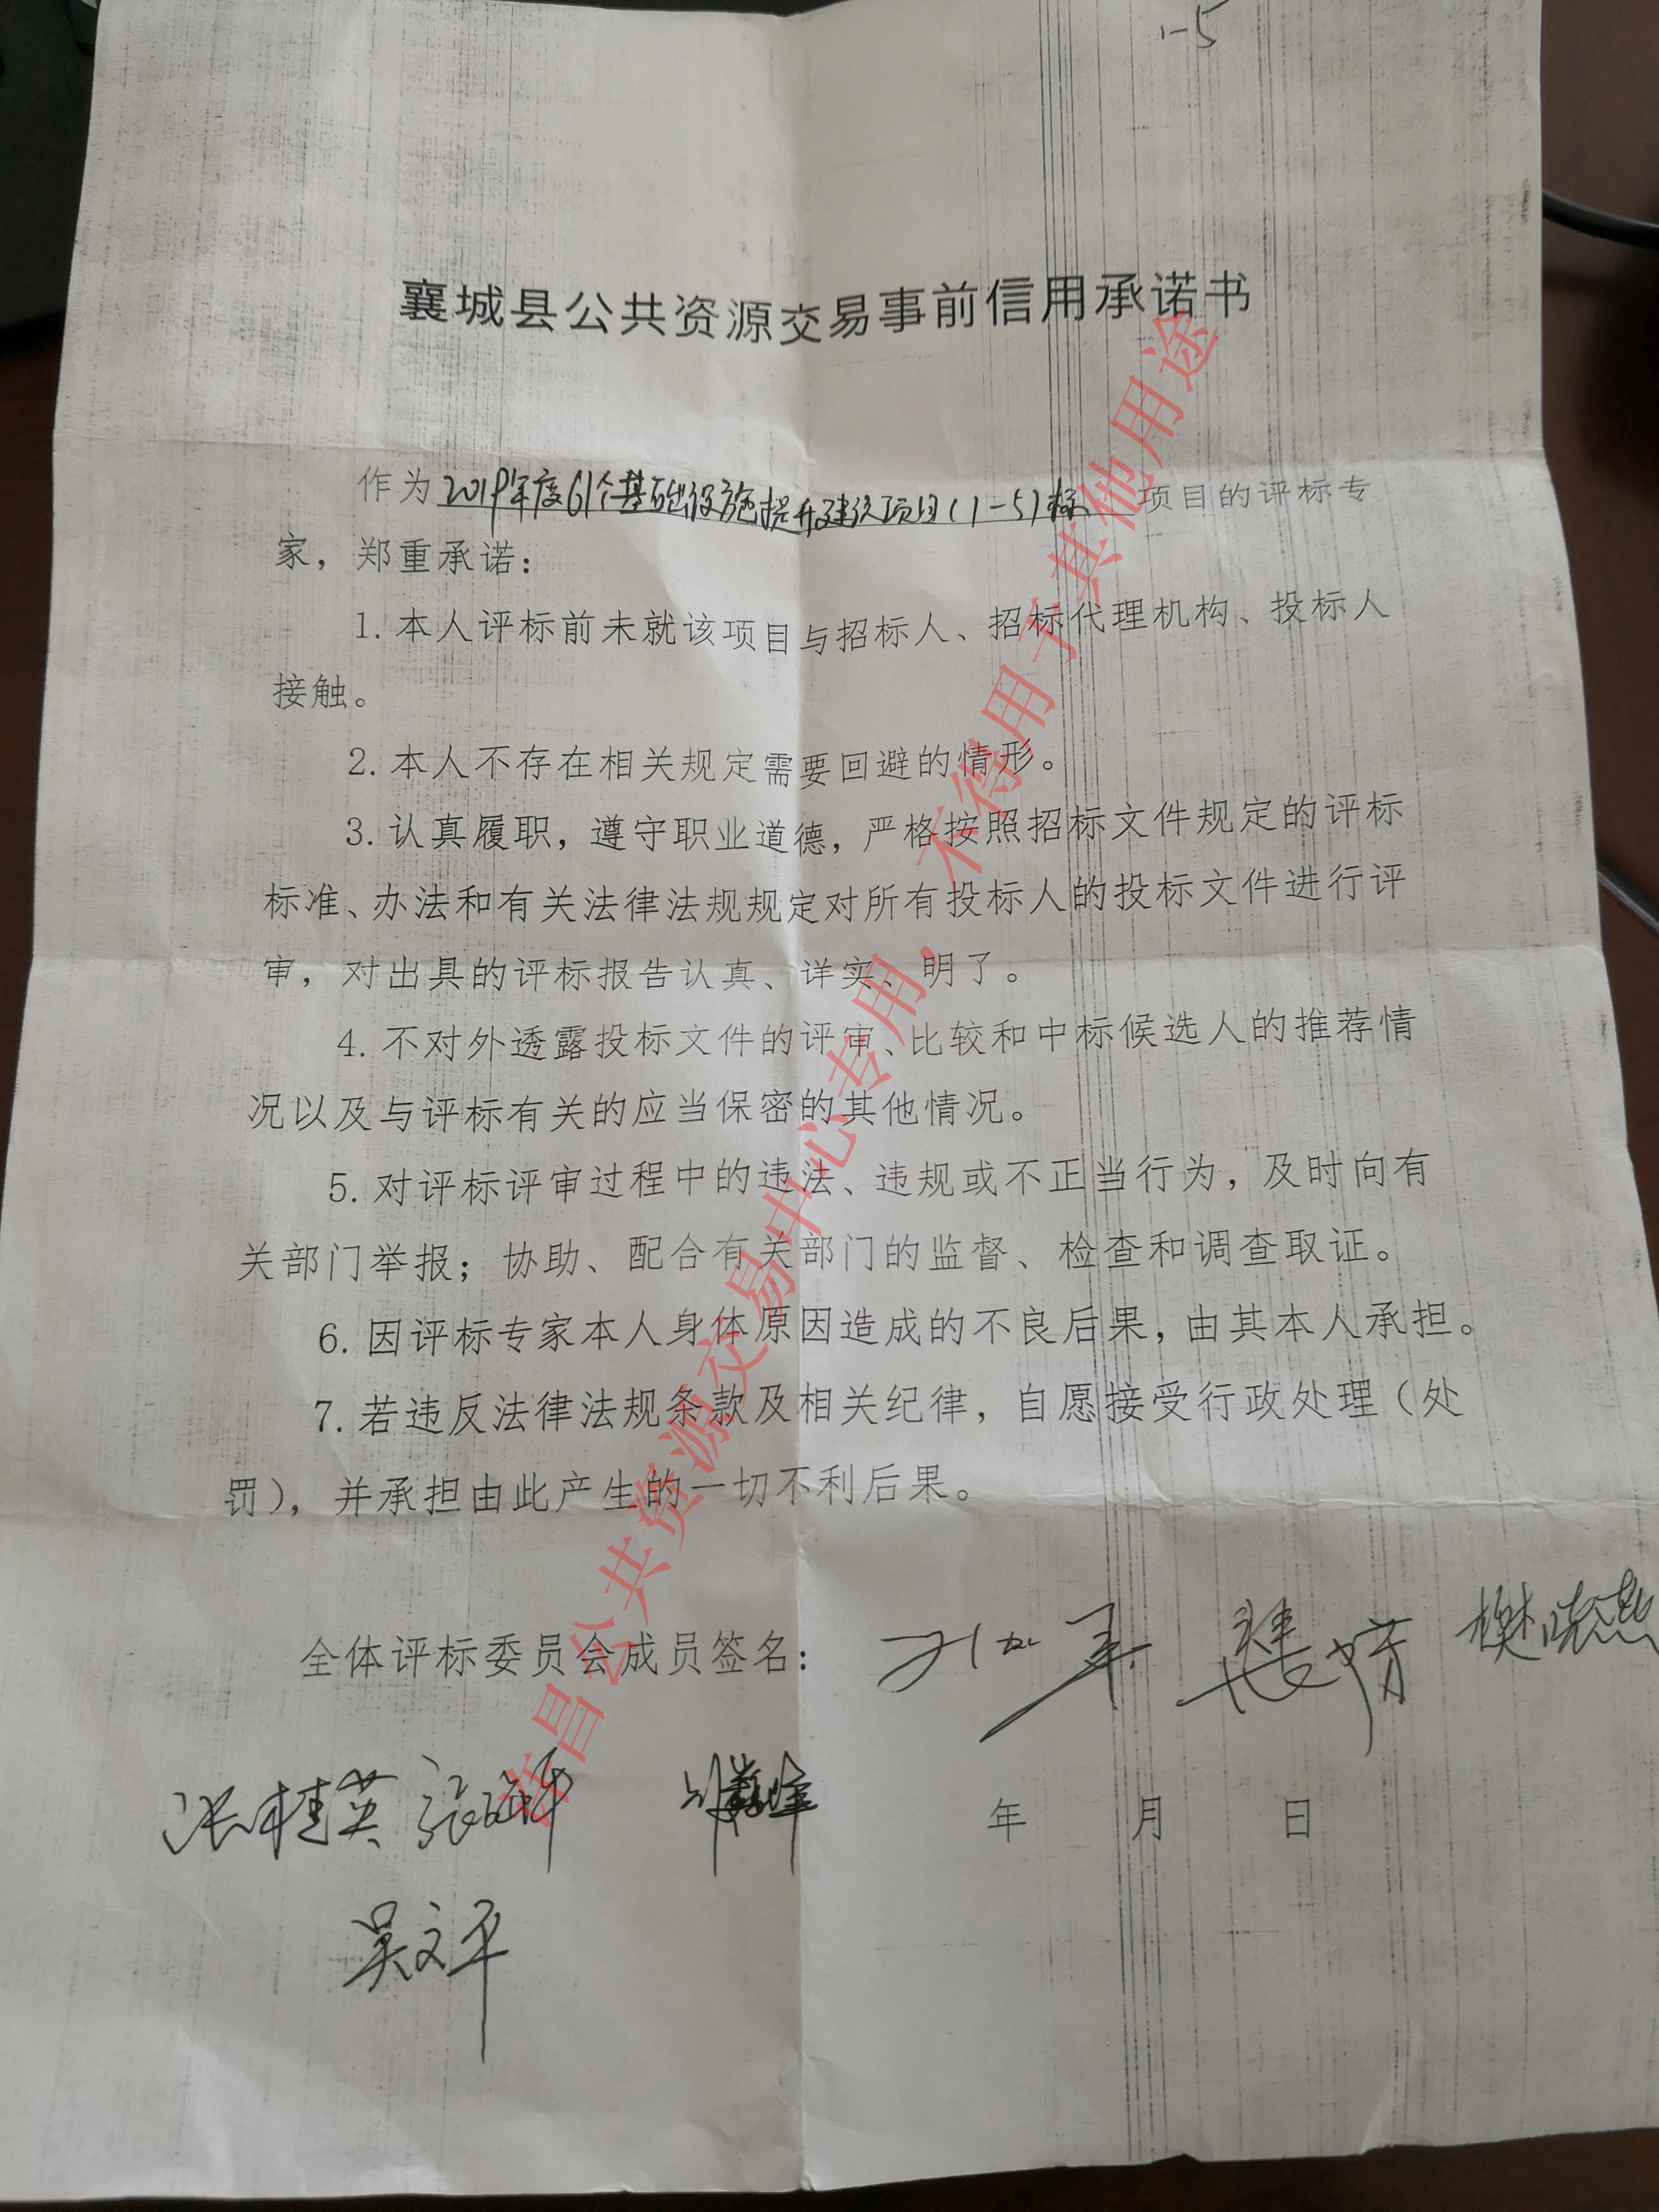 1-5
襄城县公共资源交易事前信用承诺书
作为2019年度61个基础设施提升建设项目(1-5)标项目的评标专
家，郑重承诺：
1.本人评标前未就该项目与招标人、招标代理机构、投标人
接触。
2.本人不存在相关规定需要回避的情形。
3.认真履职，遵守职业道德，严格按照招标文件规定的评标
标准、办法和有关法律法规规定对所有投标人的投标文件进行评
审，对出具的评标报告认真、详实、明了。
4.不对外透露投标文件的评审、比较和中标候选人的推荐情
况以及与评标有关的应当保密的其他情况。
5.对评标评审过程中的违法、违规或不正当行为，及时向有
关部门举报；协助、配合有关部门的监督、检查和调查取证。
6.因评标专家本人身体原因造成的不良后果，由其本人承担。
7.若违反法律法规条款及相关纪律，自愿接受行政处理（处
罚），并承担由此产生的一切不利后果。
全体评标委员会成员签名：
樊晓燕
张桂英
年 月 日
吴文平
许昌公共资源交易中心专用，不得用于其他用途